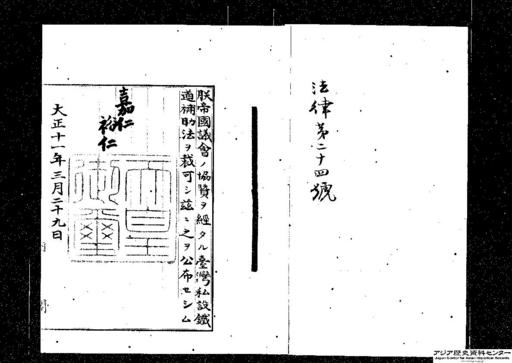 法律第二十四號
朕帝國議會ノ協贊ヲ經タル臺灣私設鐵
道補助法ヲ裁可シ茲ニ之ヲ公布セシム
嘉仁
裕仁
天皇
御璽
大正十一年三月二十九日
アジア歴史資料センター
Japan Center for Asian Historical Records